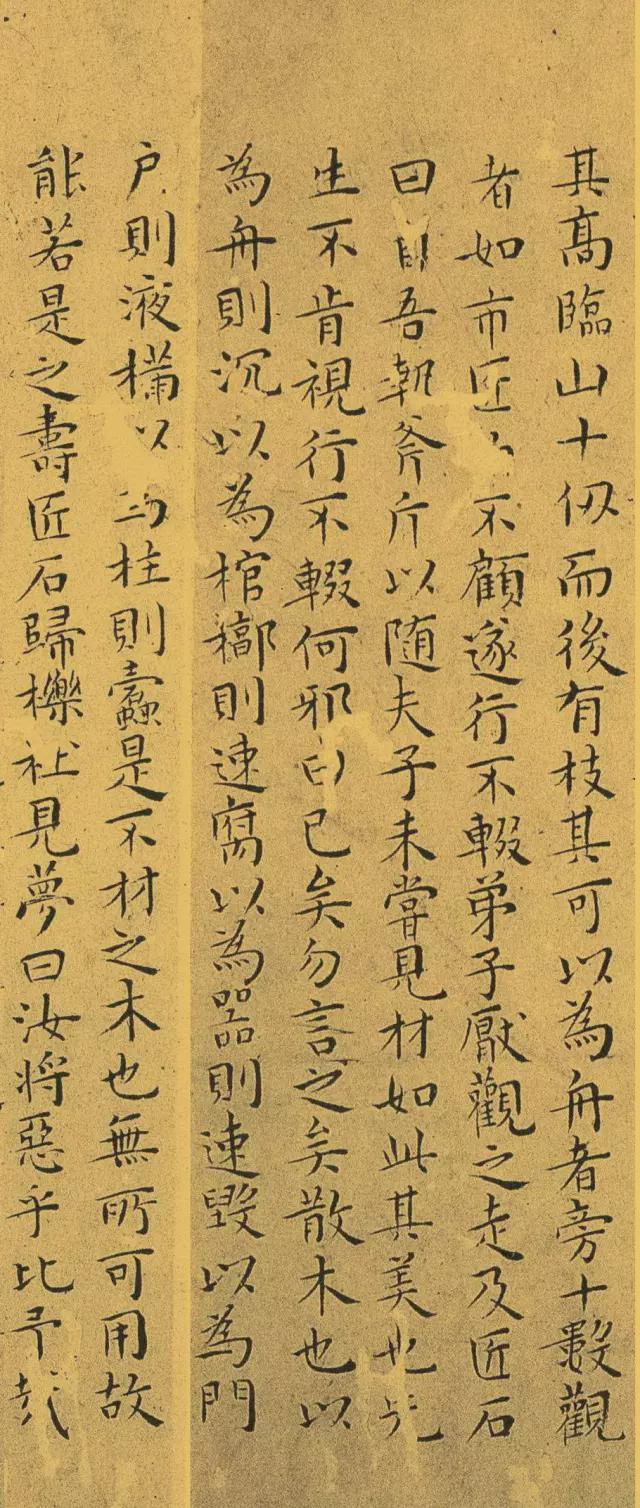 其髙臨山十仭而後有枝其可以為舟者旁十數觀
者如市匠不顧遂行不輟弟子厭觀之走及匠石
曰自吾執斧斤以随夫子未甞見材如此其美也先
生不肯視行不輟何邪曰已矣勿言之矣散木也以
為舟則沉以為棺槨則速腐以為器則速毀以為門
户則液樠以為柱則蠹是不材之木也無所可用故
能若是之壽匠石歸櫟社見夢曰汝將惡乎比予哉